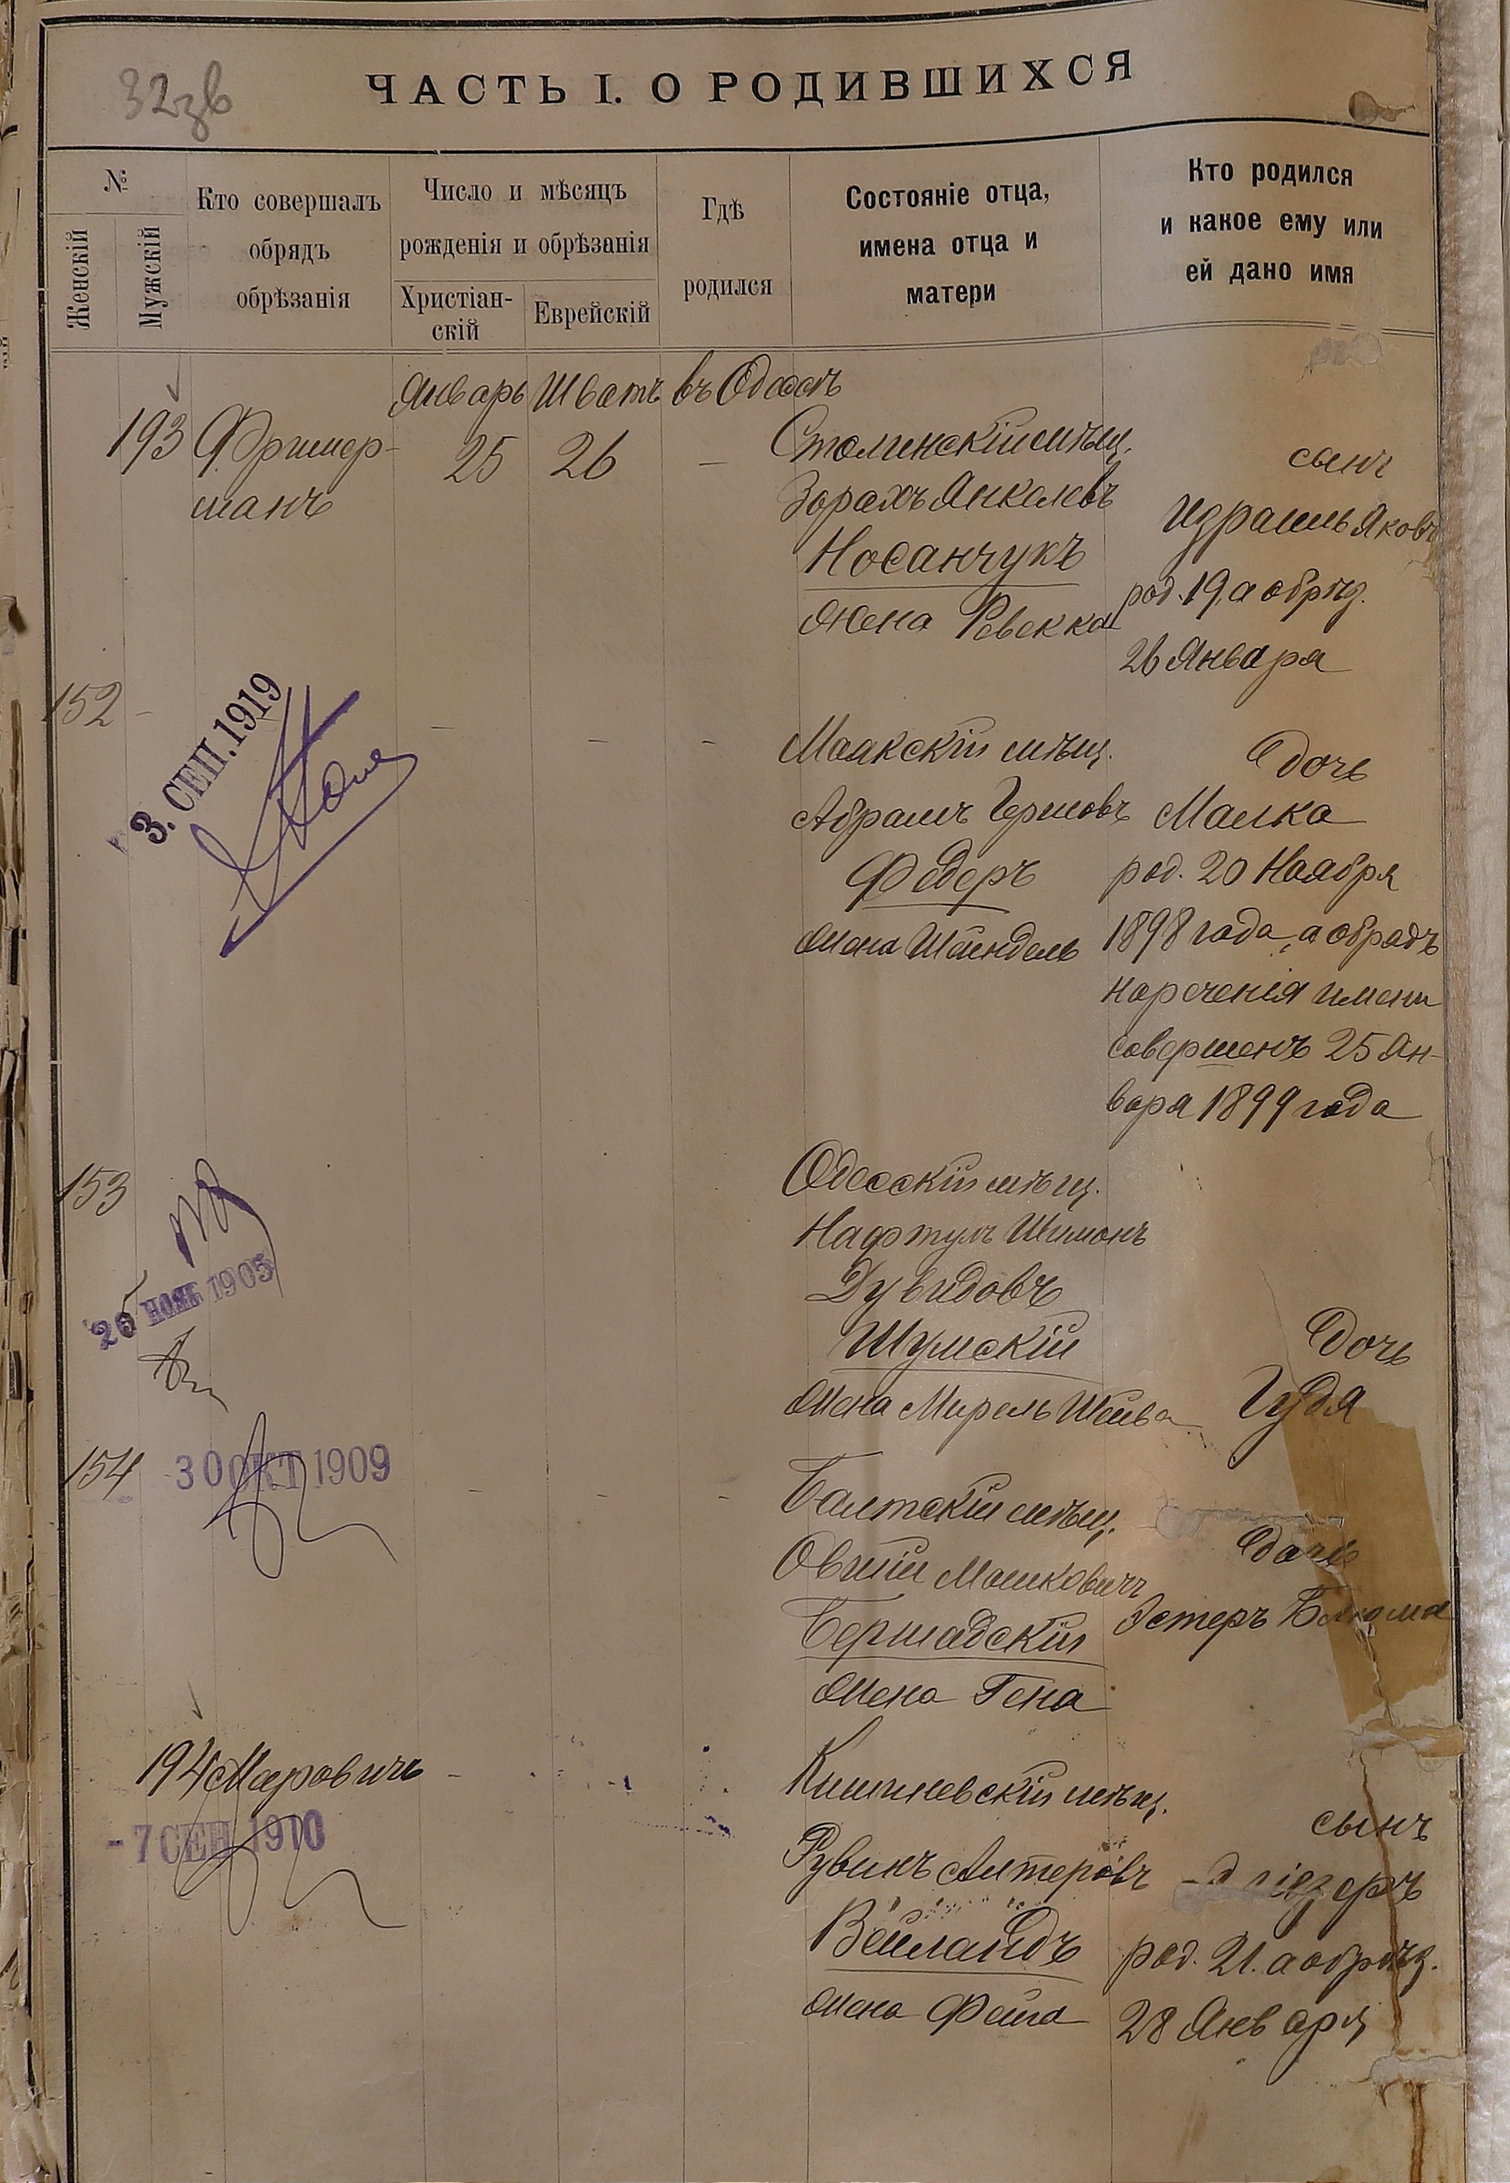 32зв
ЧАСТЬ I. О РОДИВШИХСЯ
№
Женскій
Мужскій
Кто совершалъ
обрядъ
обрѣзанія
Число и мѣсяцъ
рожденія и обрѣзанія
Христіан-
скій
Еврейскій
Гдѣ
родился
Состояніе отца,
имена отца и
матери
Кто родился
и какое ему или
ей дано имя
Январь Шватъ въ Одессѣ
193 Фример-
манъ
25 26 —
Столинскій мѣщ.
Зорахъ Янкелевъ
Носанчукъ
жена Ревекка
сынъ
Израиль Яковъ
род. 19, а обрѣз.
26 Января
152
3. СЕП. 1919
Маякскій мѣщ.
Абрамъ Гершовъ
Федеръ
жена Шейндель
дочь
Малка
род. 20 Ноября
1898 года, а обрядъ
нареченія имени
совершенъ 25 Ян-
варя 1899 года
153
26 НОЯБ 1905
Одесскій мѣщ.
Нафтулъ Шимонъ
Дувидовъ
Шумскій
жена Мирель Шейва
дочь
Гудя
154
30 ОКТ 1909
Балтскій мѣщ.
Овшій Мошковичъ
Бершадскій
жена Гена
дочь
Эстеръ Блюма
194 Маровичъ
- 7 СЕН 1910
Кишиневскій мѣщ.
Рувинъ Алтеровъ
Вейландъ
жена Фейга
сынъ
Эліезеръ
род. 21. а обрѣз.
28 Января